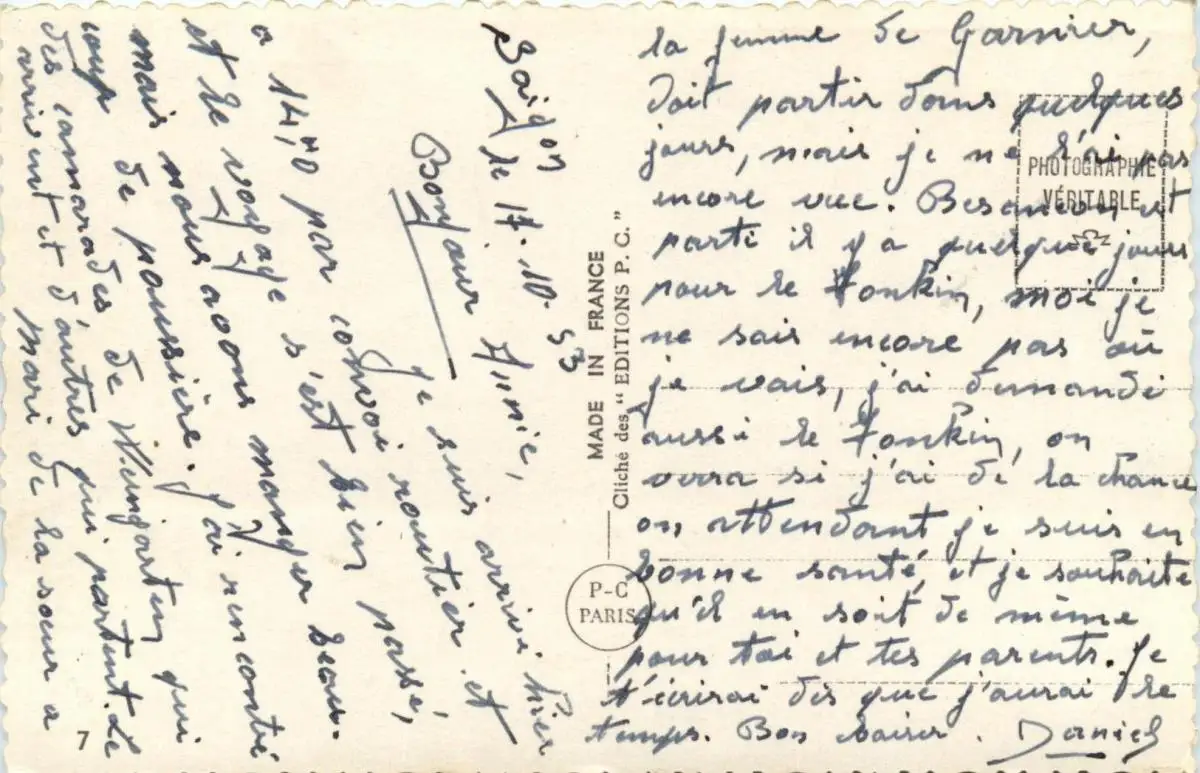 Saigon le 17.10.53
Bonjour Annie,
je suis arrivé hier
a 14,40 par convoi routier. et
et le voyage s'est bien passé,
mais nous avons manger beau-
coup de poussière. j'ai rencontré
des camarades de Weingarten qui
arrivent et d'autres qui partent. Le
mari de la soeur a
la femme de Garnier,
doit partir dans quelques
jours, mais je ne l'ai pas
encore vue. Besancon est
parti il y a quelque jours
pour le Tonkin, moi je
ne sais encore pas où
je vais, j'ai demandé
aussi le Tonkin, on
verra si j'ai de la chance
en attendant je suis en
bonne santé, et je souhaite
qu'il en soit de même
pour toi et tes parents. Je
t'écrirai dès que j'aurai le
temps. Bon baiser. Daniel
PHOTOGRAPHIE
VÉRITABLE
MADE IN FRANCE
Cliché des "EDITIONS P. C."
P-C
PARIS
7